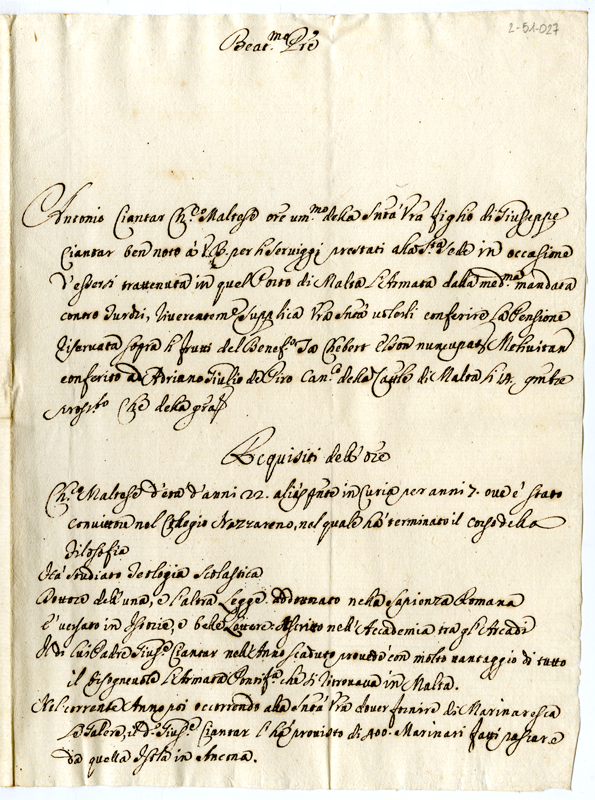 2-51-027
Beat.mo Pre
Antonio Ciantar Ch.o Maltese ore um.mo della Sntà Vra figlio di Giuseppe
Ciantar ben noto à V.B. per li serviggi prestati alla S.ta Sede in occasione
d'essersi trattenuta in quel Porto di Malta l'Armata dalla med.ma mandata
contro Turchi, riverentem.e supplica Vra Sntà volerli conferire la Pensione
riservata sopra li frutti del Benef.o Ta Chebert nuncupat
conferito ad Adriano Giulio de Piro Can.o della Cattle di Malta li 14
Che della graz
Requisiti dell' ore
Ch.o Maltese d'età d'anni 22. in Curia per anni 7. ove è stato
Convittore nel Collegio Nazzareno, nel quale hà terminato il corso della
Filosofia
Hà studiato Teologia Scolastica
Dottore dell'una, e l'altra Legge addottorato nella Sapienza Romana
È versato in Istorie, e belle Lettere. Ascritto nell'Accademia tra gl'Arcadi
Il di lui Padre Gius.e Ciantar nell'Anno scaduto provedè con molto vantaggio di tutto
il bisognevole l'Armata Pontif.a che si ritrovava in Malta.
Nel corrente Anno poi occorrendo alla Sntà Vra dover fornire di Marinaresca
le Galere, il d.o Gius.e Ciantar l'hà provisto di 400. Marinari fatti passare
da quella Isola in Ancona.